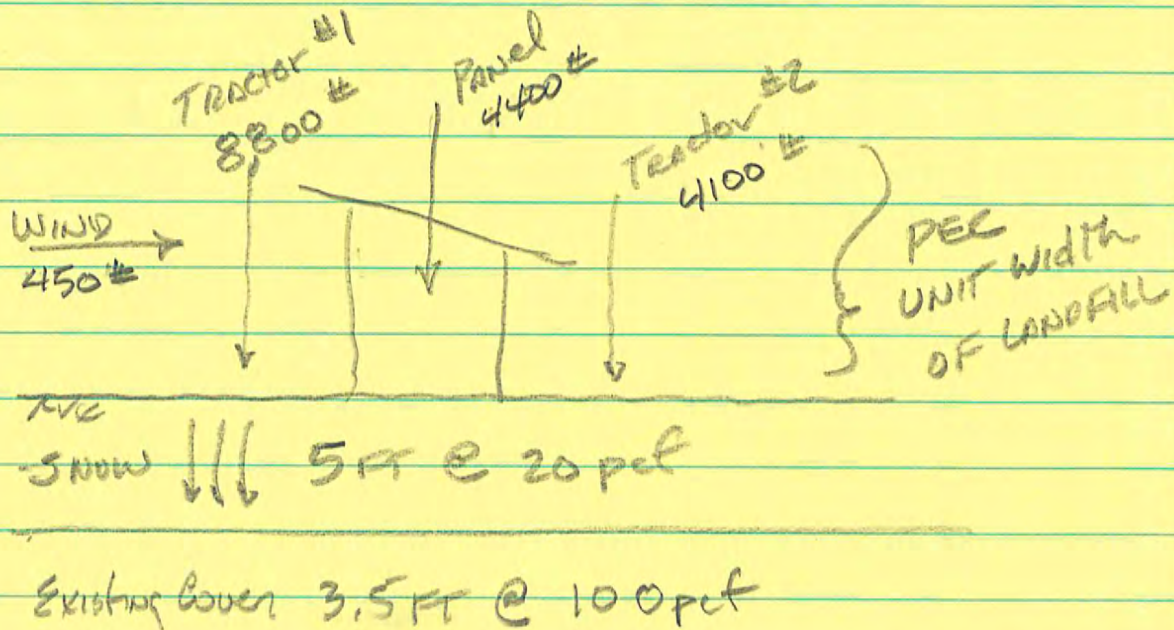 TRACTOR #1
8800 #
PANEL
4400 #
TRACTOR #2
4100 #
WIND
450 #
PER
UNIT WIDTH
OF LANDFILL
AVE
SNOW 5 FT @ 20 pcf
Existing Cover 3.5 FT @ 100 pcf